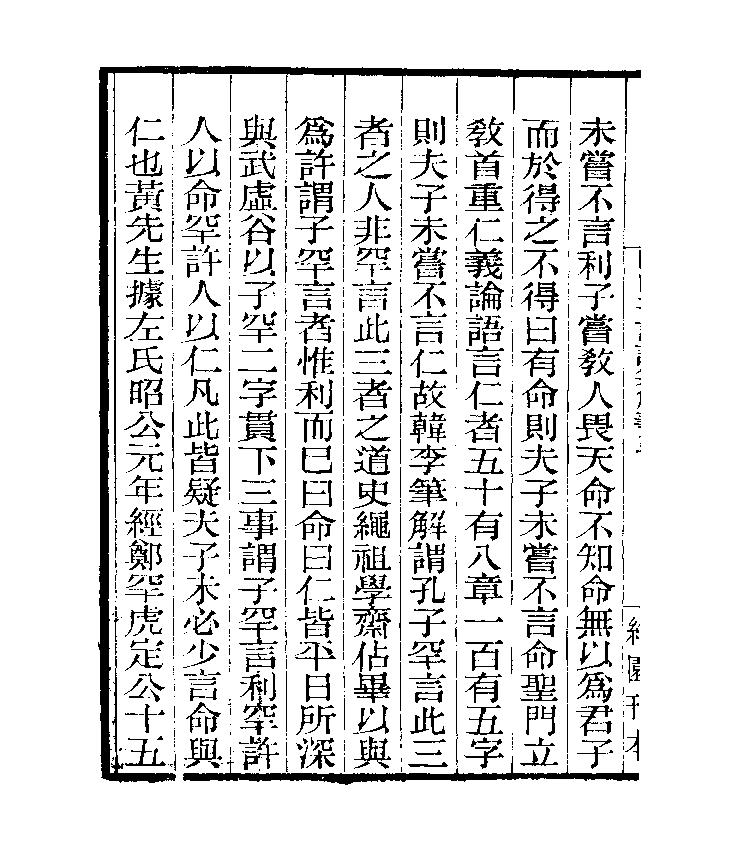 未嘗不言利子嘗敎人畏天命不知命無以爲君子
而於得之不得曰有命則夫子未嘗不言命聖門立
敎首重仁義論語言仁者五十有八章一百有五字
則夫子未嘗不言仁故韓李筆解謂孔子罕言此三
者之人非罕言此三者之道史繩祖學齋佔畢以與
爲許謂子罕言者惟利而已曰命曰仁皆平日所深
與武虛谷以子罕二字貫下三事謂子罕言利罕許
人以命罕許人以仁凡此皆疑夫子未必少言命與
仁也黃先生據左氏昭公元年經鄭罕虎定公十五